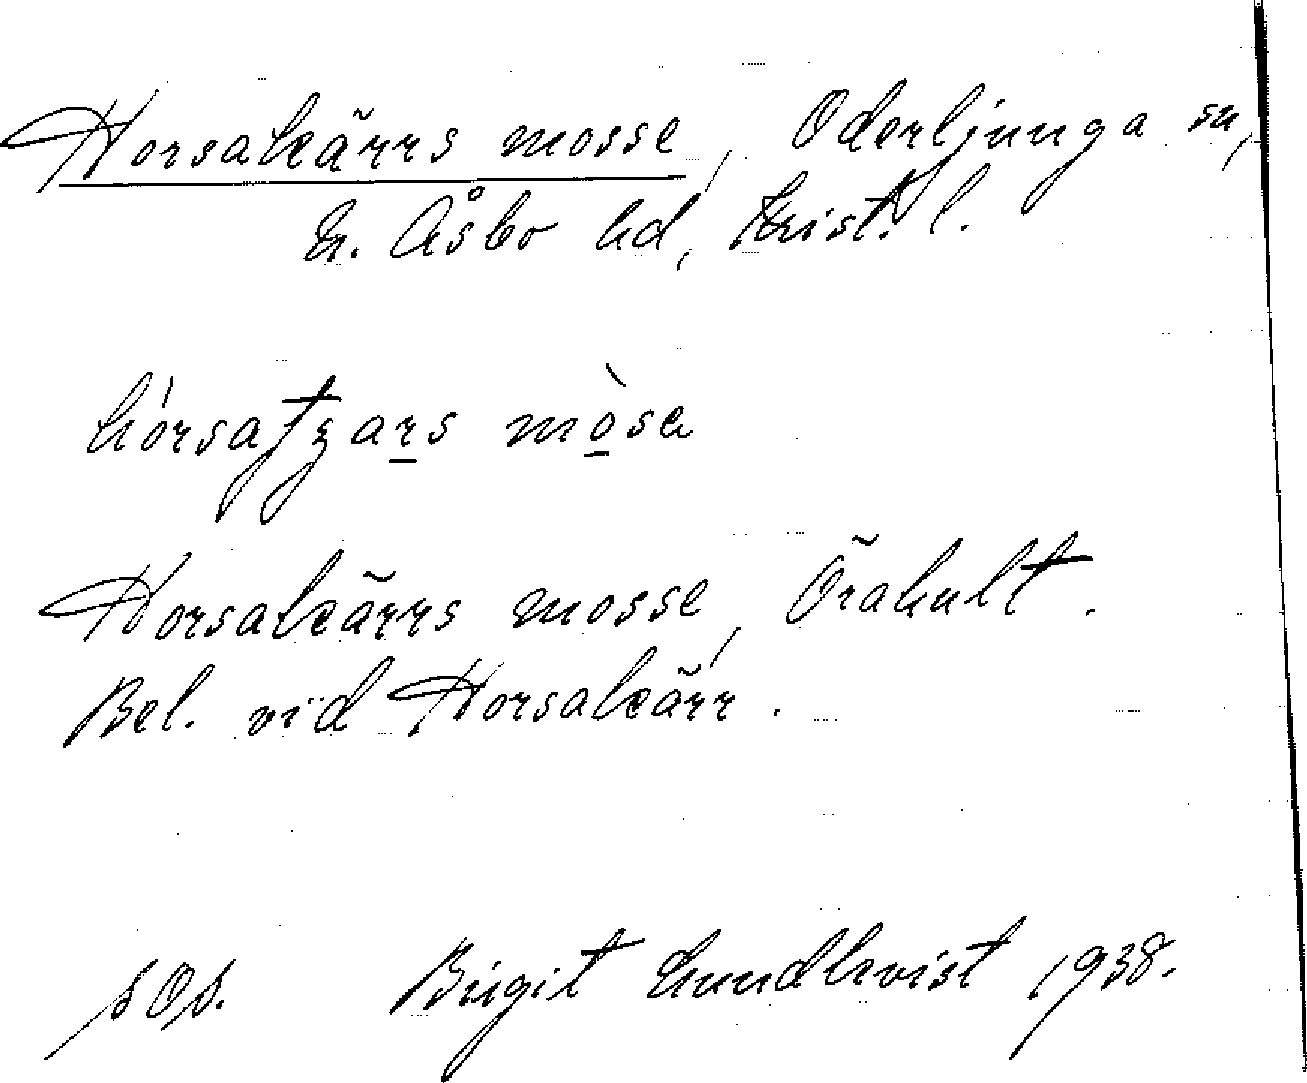 Horsakärrs mosse, Oderljunga sn,
N. Åsbo hd, Krist. l.
hórsatʒars mòsa
Horsakärrs mosse, Örahult.
Bel. vid Horsakärr.
SOS. Birgit Lundkvist 1938.